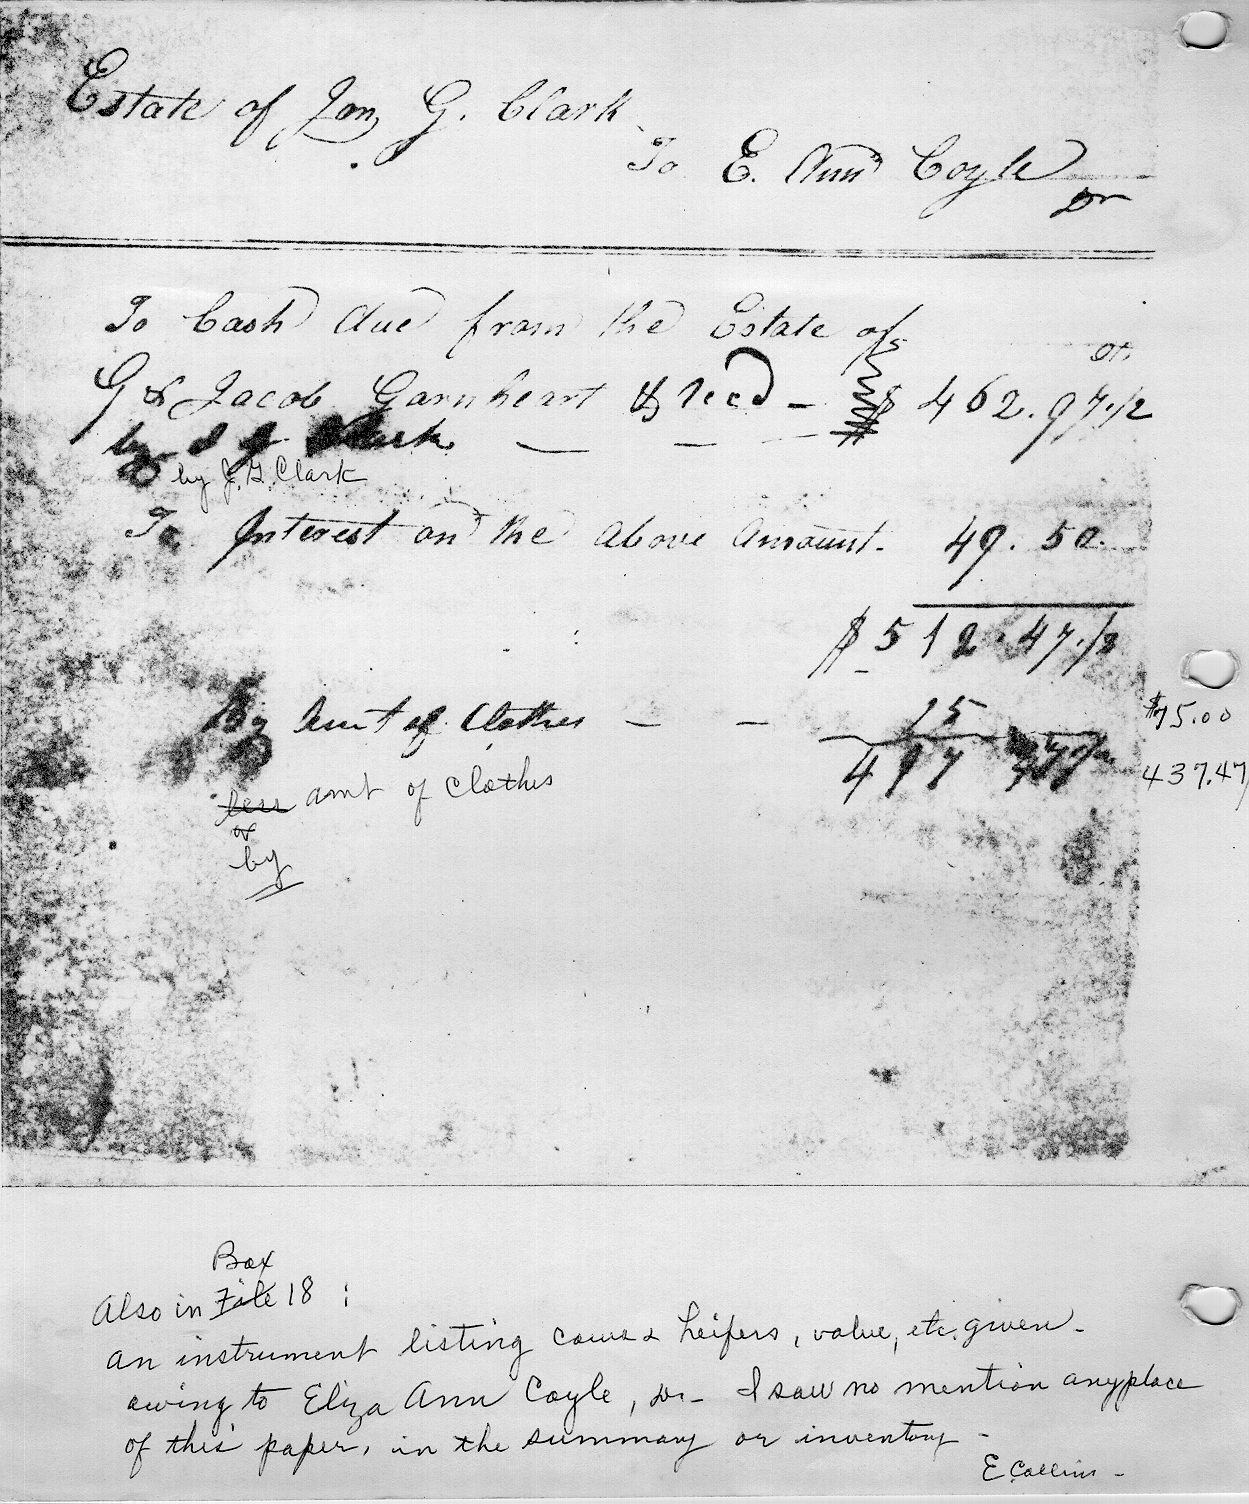 Estate of Jon, G. Clark
To E. Ann Coyle
Dr
To Cash due from the Estate of
G & Jacob Garnheart & Recd — $ 462.97 1/2
by J G Clark — — —
by J. G. Clark
To Interest on the above amount. 49.50
$512.47 1/2
By Amt of Clothes — — 75 $75.00
437 47 1/2 437.47
less amt of clothes
or
by
Box
Also in File 18 :
an instrument listing cows & heifers, value, etc. given -
owing to Eliza Ann Coyle, Dr - I saw no mention anyplace
of this paper, in the summary or inventory -
E Collins -